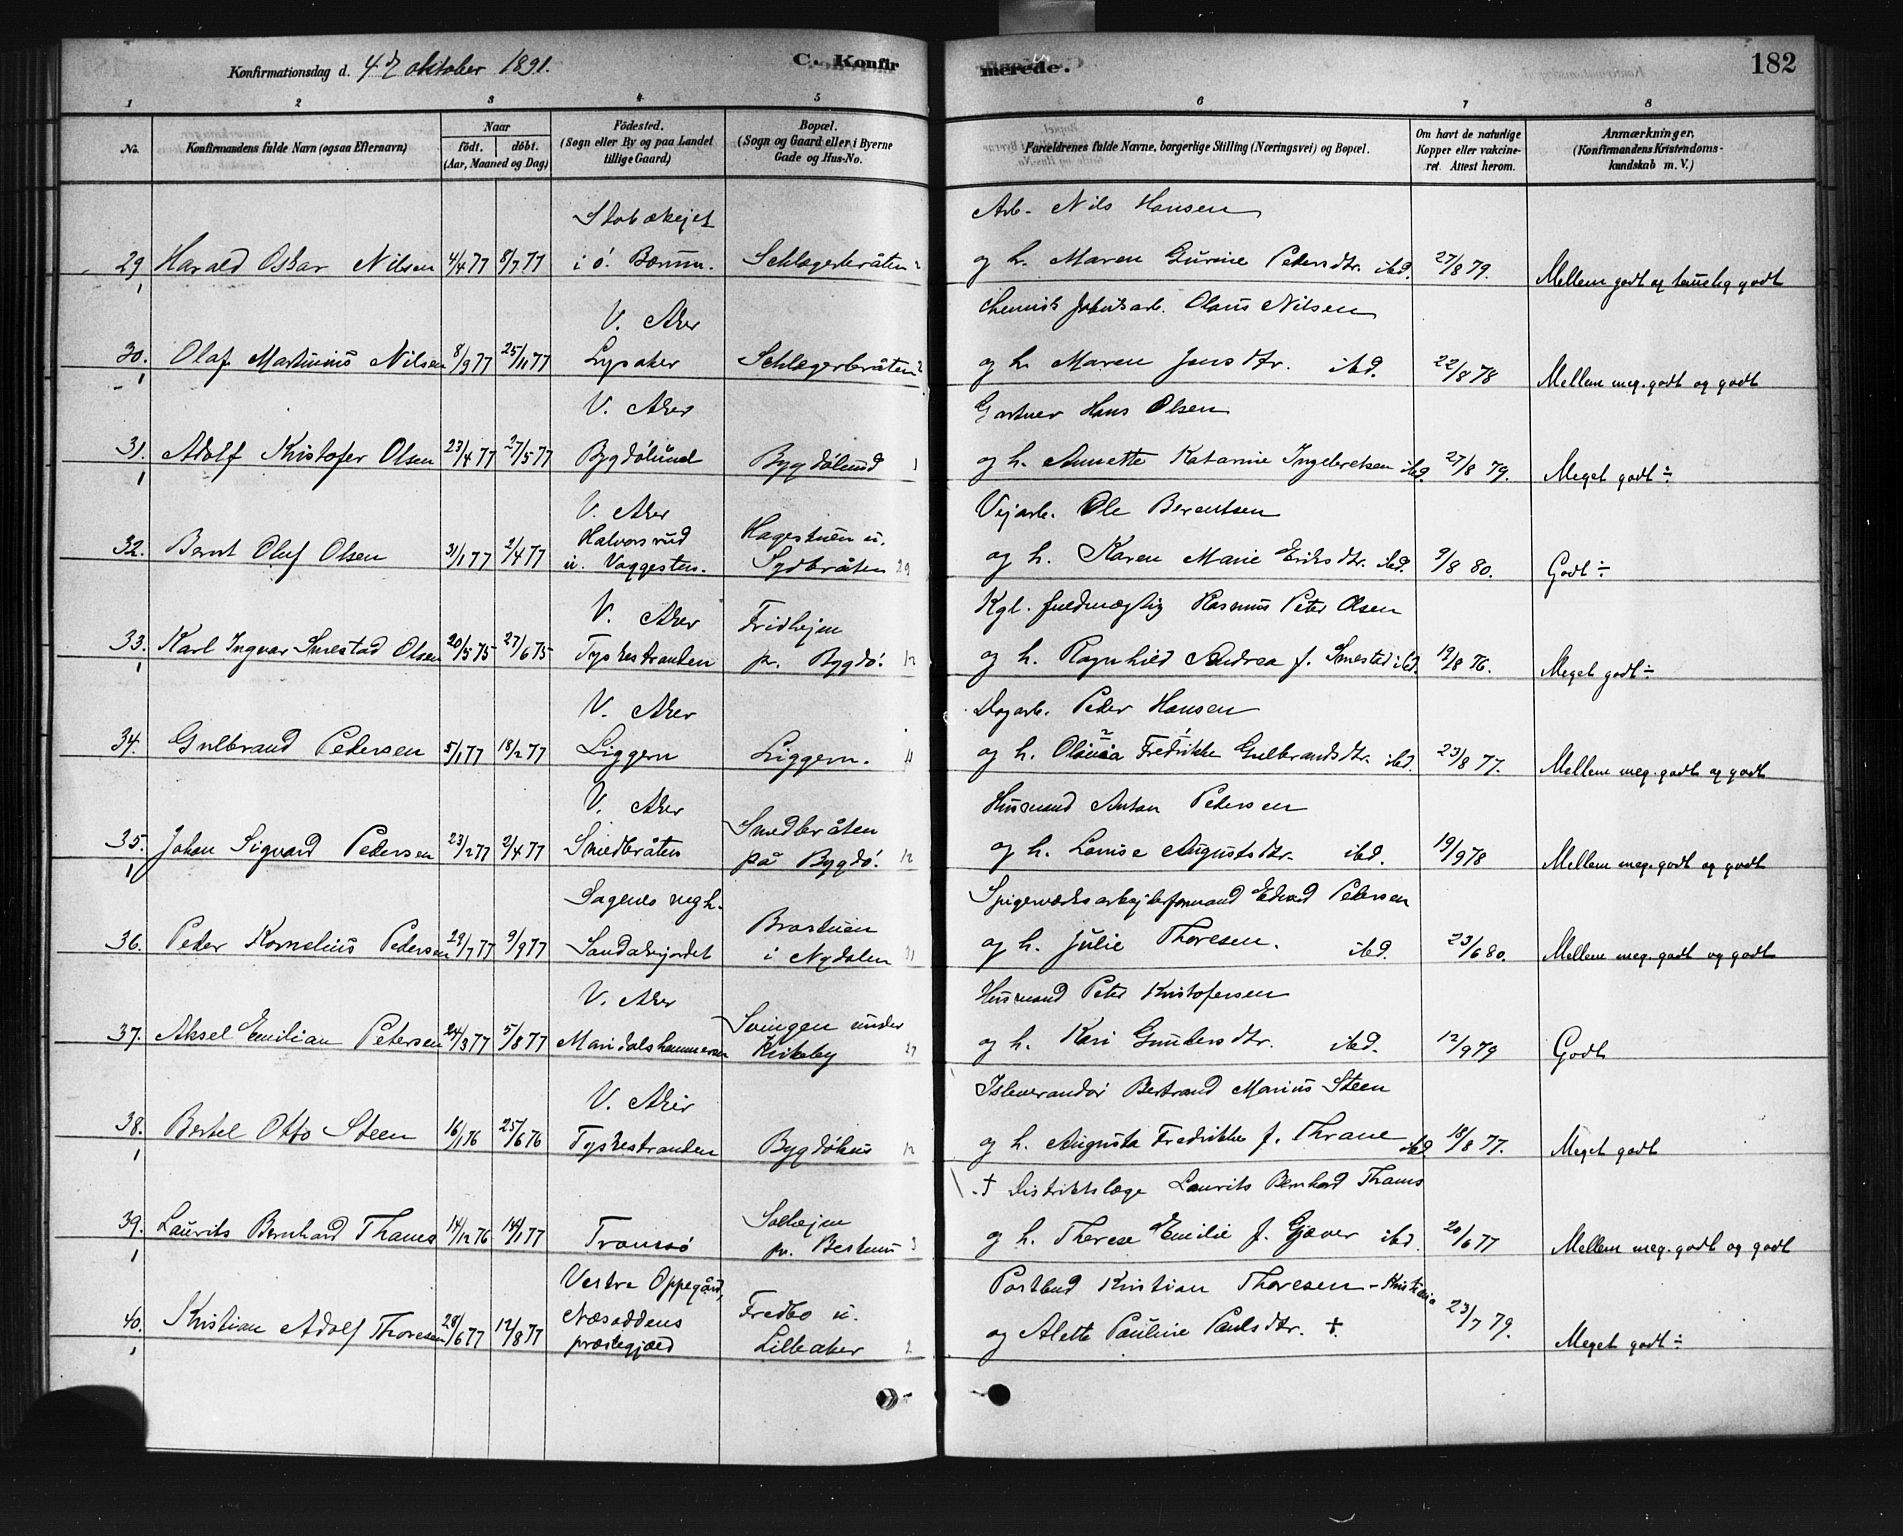 Konfirmationsdag d. 4de oktober 1891. C. Konfirmerede. 182
1 2 3 4 5 6 7 8
No. Konfirmandens fulde Navn (ogsaa Efternavn) Naar født. døbt. (Aar, Maaned og Dag) Fødested. (Sogn eller By og paa Landet tillige Gaard) Bopæl. (Sogn og Gaard eller i Byerne Gade og Hus-No. Forældrenes fulde Navne, borgerlige Stilling (Næringsvei) og Bopæl. Om havt de naturlige Kopper eller vakcineret. Attest herom. Anmærkninger. (Konfirmandens Kristendomskundskab m. V.)
Arb. Nils Hansen
29 Harald Oskar Nilsen 4/4 77 8/7 77 i Ö. Bærum. Schlægerbråten og h. Maren Gurine Pedersdtr. ibd. 27/8 79. Mellem godt og temelig godt
V. Aker Olaus Nilsen
30. Olaf Martinius Nilsen 8/9 77 25/11 77 Lysaker Schlægerbråten og h. Maren Jensdtr. ibd. 22/8 78 Mellem meg. godt og godt
V. Aker Gartner Hans Olsen
31. Adolf Kristofer Olsen 23/4 77 27/5 77 Bygdölund Bygdölund og h. Annette Katarine Ingebretsen ibd. 27/8 79. Meget godt ÷
V. Aker Vejarb. Ole Berentsen
Halvorsrud Hagestuen u.
32. Bernt Oluf Olsen 31/1 77 2/4 77 u. Vaggesten. Sydbråten 29 og h. Karen Marie Eriksdtr. ibd. 9/8 80. Godt ÷
V. Aker Fridhejm Kgl. fuldmægtig Rasmus Peter Olsen
33. Karl Ingvar Smestad Olsen 20/5 75 27/6 75 Tyskestranden pr. Bygdö. 12 og h. Ragnhild Andrea f. Smestad ibd. 19/8 76. Meget godt ÷
V. Aker Dagarb. Peder Hansen
34. Gulbrand Pedersen 5/1 77 18/2 77 Liggern Liggern. 11 og h. Olivia Fredrikke Gulbrandsdtr. ibd. 23/8 77. Mellem meg. godt og godt
V. Aker Smedbråten Husmand Anton Pedersen
35. Johan Sigvard Pedersen 23/2 77 2/4 77 Smedbråten på Bygdö. 12 og h. Louise Augustsdtr. ibd. 19/9 78 Mellem meg. godt og godt
Sagenes megh. Brostuen Spigerværksarbejderformand Edvard Pedersen
36. Peder Kornelius Pedersen 29/7 77 9/9 77 Sandakerjordet i Nydalen 31 og h. Julie Thoresen. ibd. 23/6 80. Mellem meg. godt og godt
V. Aker Svingen under Husmand Peter Kristofersen
37. Aksel Emilian Petersen 24/3 77 5/8 77 Maridalshammeren Kirkeby 27 og h. Kari Gundersdtr. ibd. 12/9 79 Godt
V. Aker Isleverandör Bertrand Marius Steen
38. Bertel Otto Steen 16/1 76 25/6 76 Tyskestranden Bygdöhus 12 og h. Augusta Fredrikke f. Thrane ibd 18/8 77. Meget godt
† Distriktslæge Laurits Bernhard Thams
39. Laurits Bernhard Thams 14/12 76 14/1 77 Tromsö Solhejm pr. Bestum 3 og h. Therese Emilie f. Gjæver ibd 20/6 77 Mellem meg. godt og godt
Vestre Oppegård, Postbud Kristian Thoresen - Kristiania
40. Kristian Adolf Thoresen 28/6 77 12/8 77 Næsoddens Fredbo u. og Alette Pauline Paulsdtr. †. 23/7 79. Meget godt ÷
præstegjæld Lilleaker 2